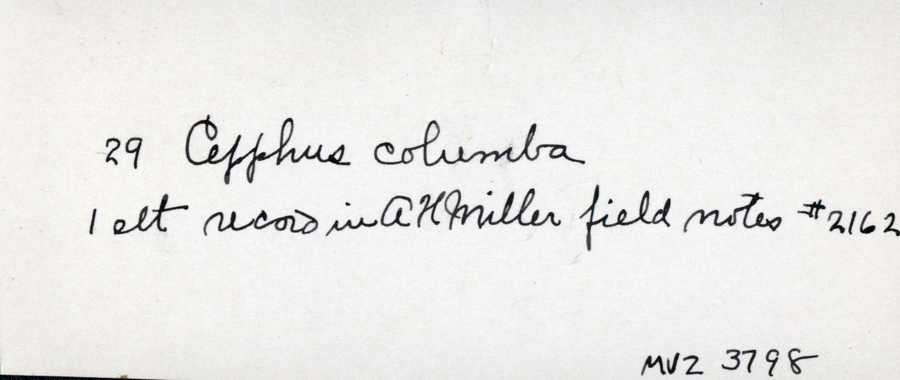 29 Cepphus columba
1 slt record in A H Miller field notes #2162
MVZ 3798